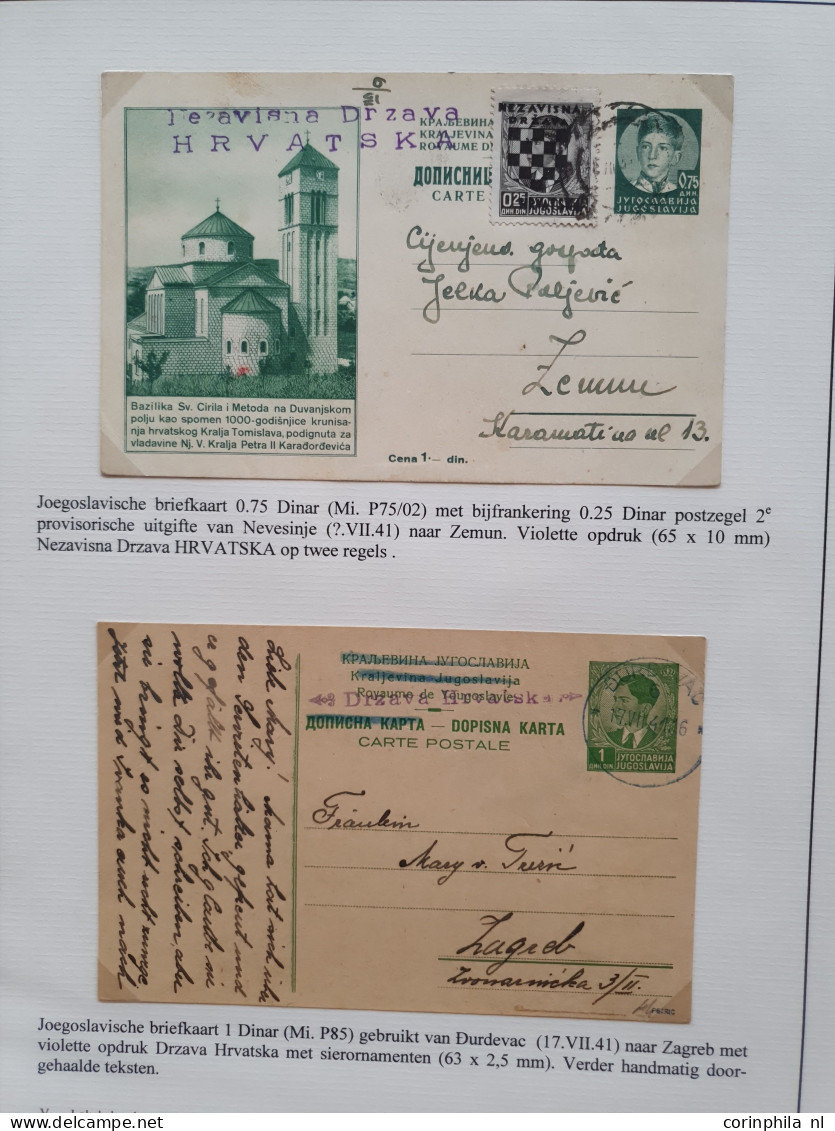 9
VII
Nezavisna Drzava
HRVATSKA
КРАЉЕВИНА
KRALJEVINA
ROYAUME D
ДОПИСНИЦ
CARTE
NEZAVISNA
DRŽAVA
0.25
ДИН. DIN. JUGOSLAVIJA
0.75
ДИН.
ЈУГОСЛАВИЈА
JUGOSLAVIJA
Cijenjena gospođa
Jelka
Zemun
13.
Bazilika Sv. Cirila i Metoda na Duvanjskom
polju kao spomen 1000-godišnjice krunisa-
nja hrvatskog Kralja Tomislava, podignuta za
vladavine Nj. V. Kralja Petra II Karađorđevića
Cena 1·— din.
Joegoslavische briefkaart 0.75 Dinar (Mi. P75/02) met bijfrankering 0.25 Dinar postzegel 2e
provisorische uitgifte van Nevesinje (?.VII.41) naar Zemun. Violette opdruk (65 x 10 mm)
Nezavisna Drzava HRVATSKA op twee regels .
КРАЉЕВИНА ЈУГОСЛАВИЈА
Kraljevina Jugoslavija
Royaume de Yougoslavie
Drzava Hrvatsk
ДОПИСНА КАРТА – DOPISNA KARTA
CARTE POSTALE
17.VII.41
1
ДИН. DIN.
ЈУГОСЛАВИЈА
JUGOSLAVIJA
Liebe Mary! Mama hat sich über
den gefreut und
er gefällt ihr gut. Ich glaube sie
wollte dir selbst schreiben, aber
sie bringt es nicht
und Ivanka auch nach
Fräulein
Mary v.
Zagreb
Zvonarnička 3/II.
Joegoslavische briefkaart 1 Dinar (Mi. P85) gebruikt van Đurdevac (17.VII.41) naar Zagreb met
violette opdruk Drzava Hrvatska met sierornamenten (63 x 2,5 mm). Verder handmatig door-
gehaalde teksten.
www.corinphila.nl en corinphila nl